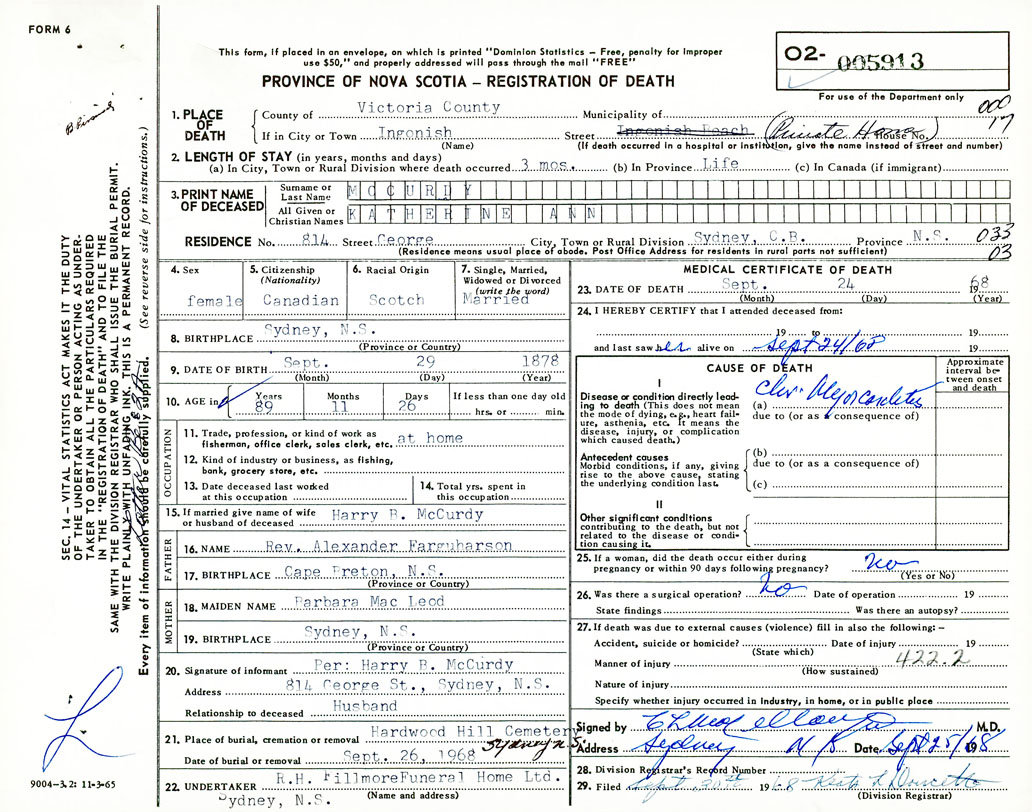 FORM 6
This form, if placed in an envelope, on which is printed "Dominion Statistics – Free, penalty for improper
use $50," and properly addressed will pass through the mail "FREE"
PROVINCE OF NOVA SCOTIA – REGISTRATION OF DEATH
O2- 005913
For use of the Department only
000
17
1. PLACE OF DEATH
County of Victoria County Municipality of
If in City or Town Ingonish Street Ingonish Beach (Private Home) House No.
(Name) (If death occurred in a hospital or institution, give the name instead of street and number)
2. LENGTH OF STAY (in years, months and days)
(a) In City, Town or Rural Division where death occurred 3 mos. (b) In Province Life (c) In Canada (if immigrant)
3. PRINT NAME OF DECEASED
Surname or Last Name MCCURDY
All Given or Christian Names KATHERINE ANN
RESIDENCE No. 814 Street George City, Town or Rural Division Sydney, C.B. Province N.S. 033
(Residence means usual place of abode. Post Office Address for residents in rural parts not sufficient) 03
4. Sex female
5. Citizenship (Nationality) Canadian
6. Racial Origin Scotch
7. Single, Married, Widowed or Divorced (write the word) Married
8. BIRTHPLACE Sydney, N.S.
(Province or Country)
9. DATE OF BIRTH Sept. 29 1878
(Month) (Day) (Year)
10. AGE in Years 89 Months 11 Days 26 If less than one day old hrs. or min.
OCCUPATION
11. Trade, profession, or kind of work as fisherman, office clerk, sales clerk, etc. at home
12. Kind of industry or business, as fishing, bank, grocery store, etc.
13. Date deceased last worked at this occupation
14. Total yrs. spent in this occupation
15. If married give name of wife or husband of deceased Harry B. McCurdy
FATHER
16. NAME Rev. Alexander Farguharson
17. BIRTHPLACE Cape Breton, N.S.
(Province or Country)
MOTHER
18. MAIDEN NAME Barbara Mac Leod
19. BIRTHPLACE Sydney, N.S.
(Province or Country)
20. Signature of informant Per: Harry B. McCurdy
Address 814 George St., Sydney, N.S.
Relationship to deceased Husband
21. Place of burial, cremation or removal Hardwood Hill Cemetery
Sydney N.S.
Date of burial or removal Sept. 26, 1968
22. UNDERTAKER R.H. FillmoreFuneral Home Ltd.
Sydney, N.S. (Name and address)
MEDICAL CERTIFICATE OF DEATH
23. DATE OF DEATH Sept. 24 1968
(Month) (Day) (Year)
24. I HEREBY CERTIFY that I attended deceased from:
19 to 19
and last saw her alive on Sept 24/68 19
CAUSE OF DEATH
Approximate interval between onset and death
I
Disease or condition directly leading to death (This does not mean the mode of dying, e.g., heart failure, asthenia, etc. It means the disease, injury, or complication which caused death.)
(a) Chr. Myocarditis
due to (or as a consequence of)
Antecedent causes
Morbid conditions, if any, giving rise to the above cause, stating the underlying condition last.
(b)
due to (or as a consequence of)
(c)
II
Other significant conditions contributing to the death, but not related to the disease or condition causing it.
25. If a woman, did the death occur either during pregnancy or within 90 days following pregnancy? no
(Yes or No)
26. Was there a surgical operation? no Date of operation 19
State findings Was there an autopsy?
27. If death was due to external causes (violence) fill in also the following: –
Accident, suicide or homicide? Date of injury 19
(State which)
Manner of injury 422.2
(How sustained)
Nature of injury
Specify whether injury occurred in Industry, in home, or in public place
Signed by M.D.
Address Sydney N S Date Sept 25/68
28. Division Registrar's Record Number
29. Filed Sept. 1968
(Division Registrar)
SEC. 14 – VITAL STATISTICS ACT MAKES IT THE DUTY
OF THE UNDERTAKER OR PERSON ACTING AS UNDER-
TAKER TO OBTAIN ALL THE PARTICULARS REQUIRED
IN THE "REGISTRATION OF DEATH" AND TO FILE THE
SAME WITH THE DIVISION REGISTRAR WHO SHALL ISSUE THE BURIAL PERMIT.
WRITE PLAINLY WITH UNFADING INK. THIS IS A PERMANENT RECORD.
Every item of information should be carefully supplied. (See reverse side for instructions.)
9004-3.2: 11-3-65